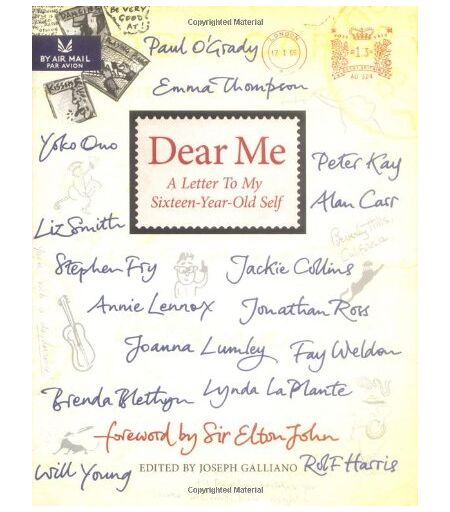 Copyrighted Material
BE VERY
GOOD
AT!
BY AIR MAIL
PAR AVION
Paul O'Grady
LONDON
Emma Thompson
Yoko Ono
Dear Me
A Letter To My
Sixteen-Year-Old Self
Peter Kay
Alan Carr
Liz Smith
Beverly Hills,
Stephen Fry
Jackie Collins
Annie Lennox
Jonathan Ross
Joanna Lumley
Fay Weldon
Brenda Blethyn
Lynda La Plante
foreword by Sir Elton John
EDITED BY JOSEPH GALLIANO
Will Young
Rolf Harris
Copyrighted Material